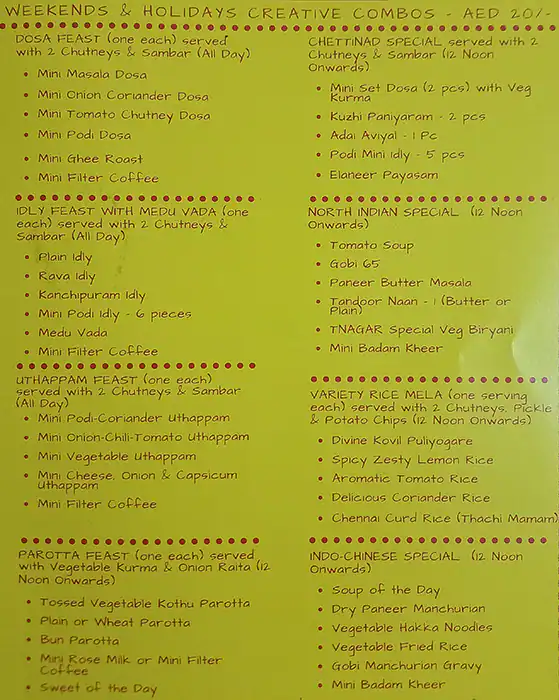 WEEKENDS & HOLIDAYS CREATIVE COMBOS - AED 20/-
DOSA FEAST (one each) served
with 2 Chutneys & Sambar (All Day)
• Mini Masala Dosa
• Mini Onion Coriander Dosa
• Mini Tomato Chutney Dosa
• Mini Podi Dosa
• Mini Ghee Roast
• Mini Filter Coffee
IDLY FEAST WITH MEDU VADA (one
each) served with 2 Chutneys &
Sambar (All Day)
• Plain Idly
• Rava Idly
• Kanchipuram Idly
• Mini Podi Idly - 6 pieces
• Medu Vada
• Mini Filter Coffee
UTHAPPAM FEAST (one each)
served with 2 Chutneys & Sambar
(All Day)
• Mini Podi-Coriander Uthappam
• Mini Onion-Chili-Tomato Uthappam
• Mini Vegetable Uthappam
• Mini Cheese, Onion & Capsicum
Uthappam
• Mini Filter Coffee
PAROTTA FEAST (one each) served
with Vegetable Kurma & Onion Raita (12
Noon Onwards)
• Tossed Vegetable Kothu Parotta
• Plain or Wheat Parotta
• Bun Parotta
• Mini Rose Milk or Mini Filter
Coffee
• Sweet of the Day
CHETTINAD SPECIAL served with 2
Chutneys & Sambar (12 Noon
Onwards)
• Mini Set Dosa (2 pcs) with Veg
Kurma
• Kuzhi Paniyaram - 2 pcs
• Adai Aviyal - 1 Pc
• Podi Mini Idly - 5 pcs
• Elaneer Payasam
NORTH INDIAN SPECIAL (12 Noon
Onwards)
• Tomato Soup
• Gobi 65
• Paneer Butter Masala
• Tandoor Naan - 1 (Butter or
Plain)
• TNAGAR Special Veg Biryani
• Mini Badam Kheer
VARIETY RICE MELA (one serving
each) served with 2 Chutneys, Pickle
& Potato Chips (12 Noon Onwards)
• Divine Kovil Puliyogare
• Spicy Zesty Lemon Rice
• Aromatic Tomato Rice
• Delicious Coriander Rice
• Chennai Curd Rice (Thachi Mamam)
INDO-CHINESE SPECIAL (12 Noon
Onwards)
• Soup of the Day
• Dry Paneer Manchurian
• Vegetable Hakka Noodles
• Vegetable Fried Rice
• Gobi Manchurian Gravy
• Mini Badam Kheer